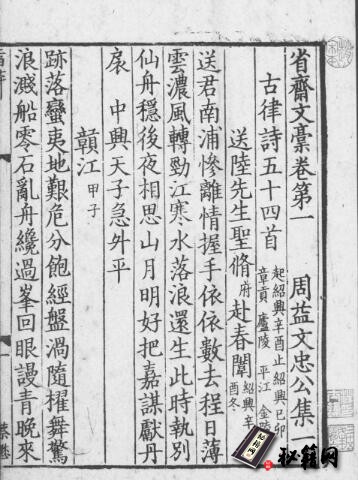 省齋文稾卷第一 周益文忠公集一
古律詩五十四首 起紹興辛酉止紹興己卯 章貢 廬陵 平江 金
送陸先生聖脩府赴春闈 紹興辛酉冬
送君南浦慘離情握手依依數去程日薄
雲濃風轉勁江寒水落浪還生此時執别
仙舟穩後夜相思山月明好把嘉謀獻丹
扆 中興天子急升平
贑江 甲子
跡落蠻夷地艱危分飽經盤渦隨櫂舞驚
浪濺船零石亂舟纔過峯回眼謾青晚來
秘籍网
秘籍网